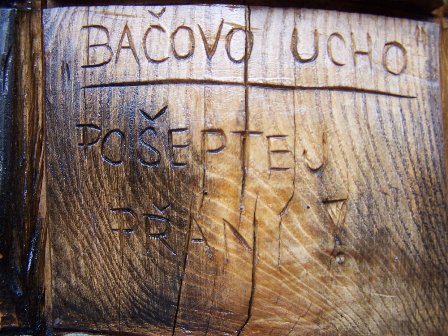 BAČOVO UCHO
POŠEPTEJ
PŘÁNÍ!